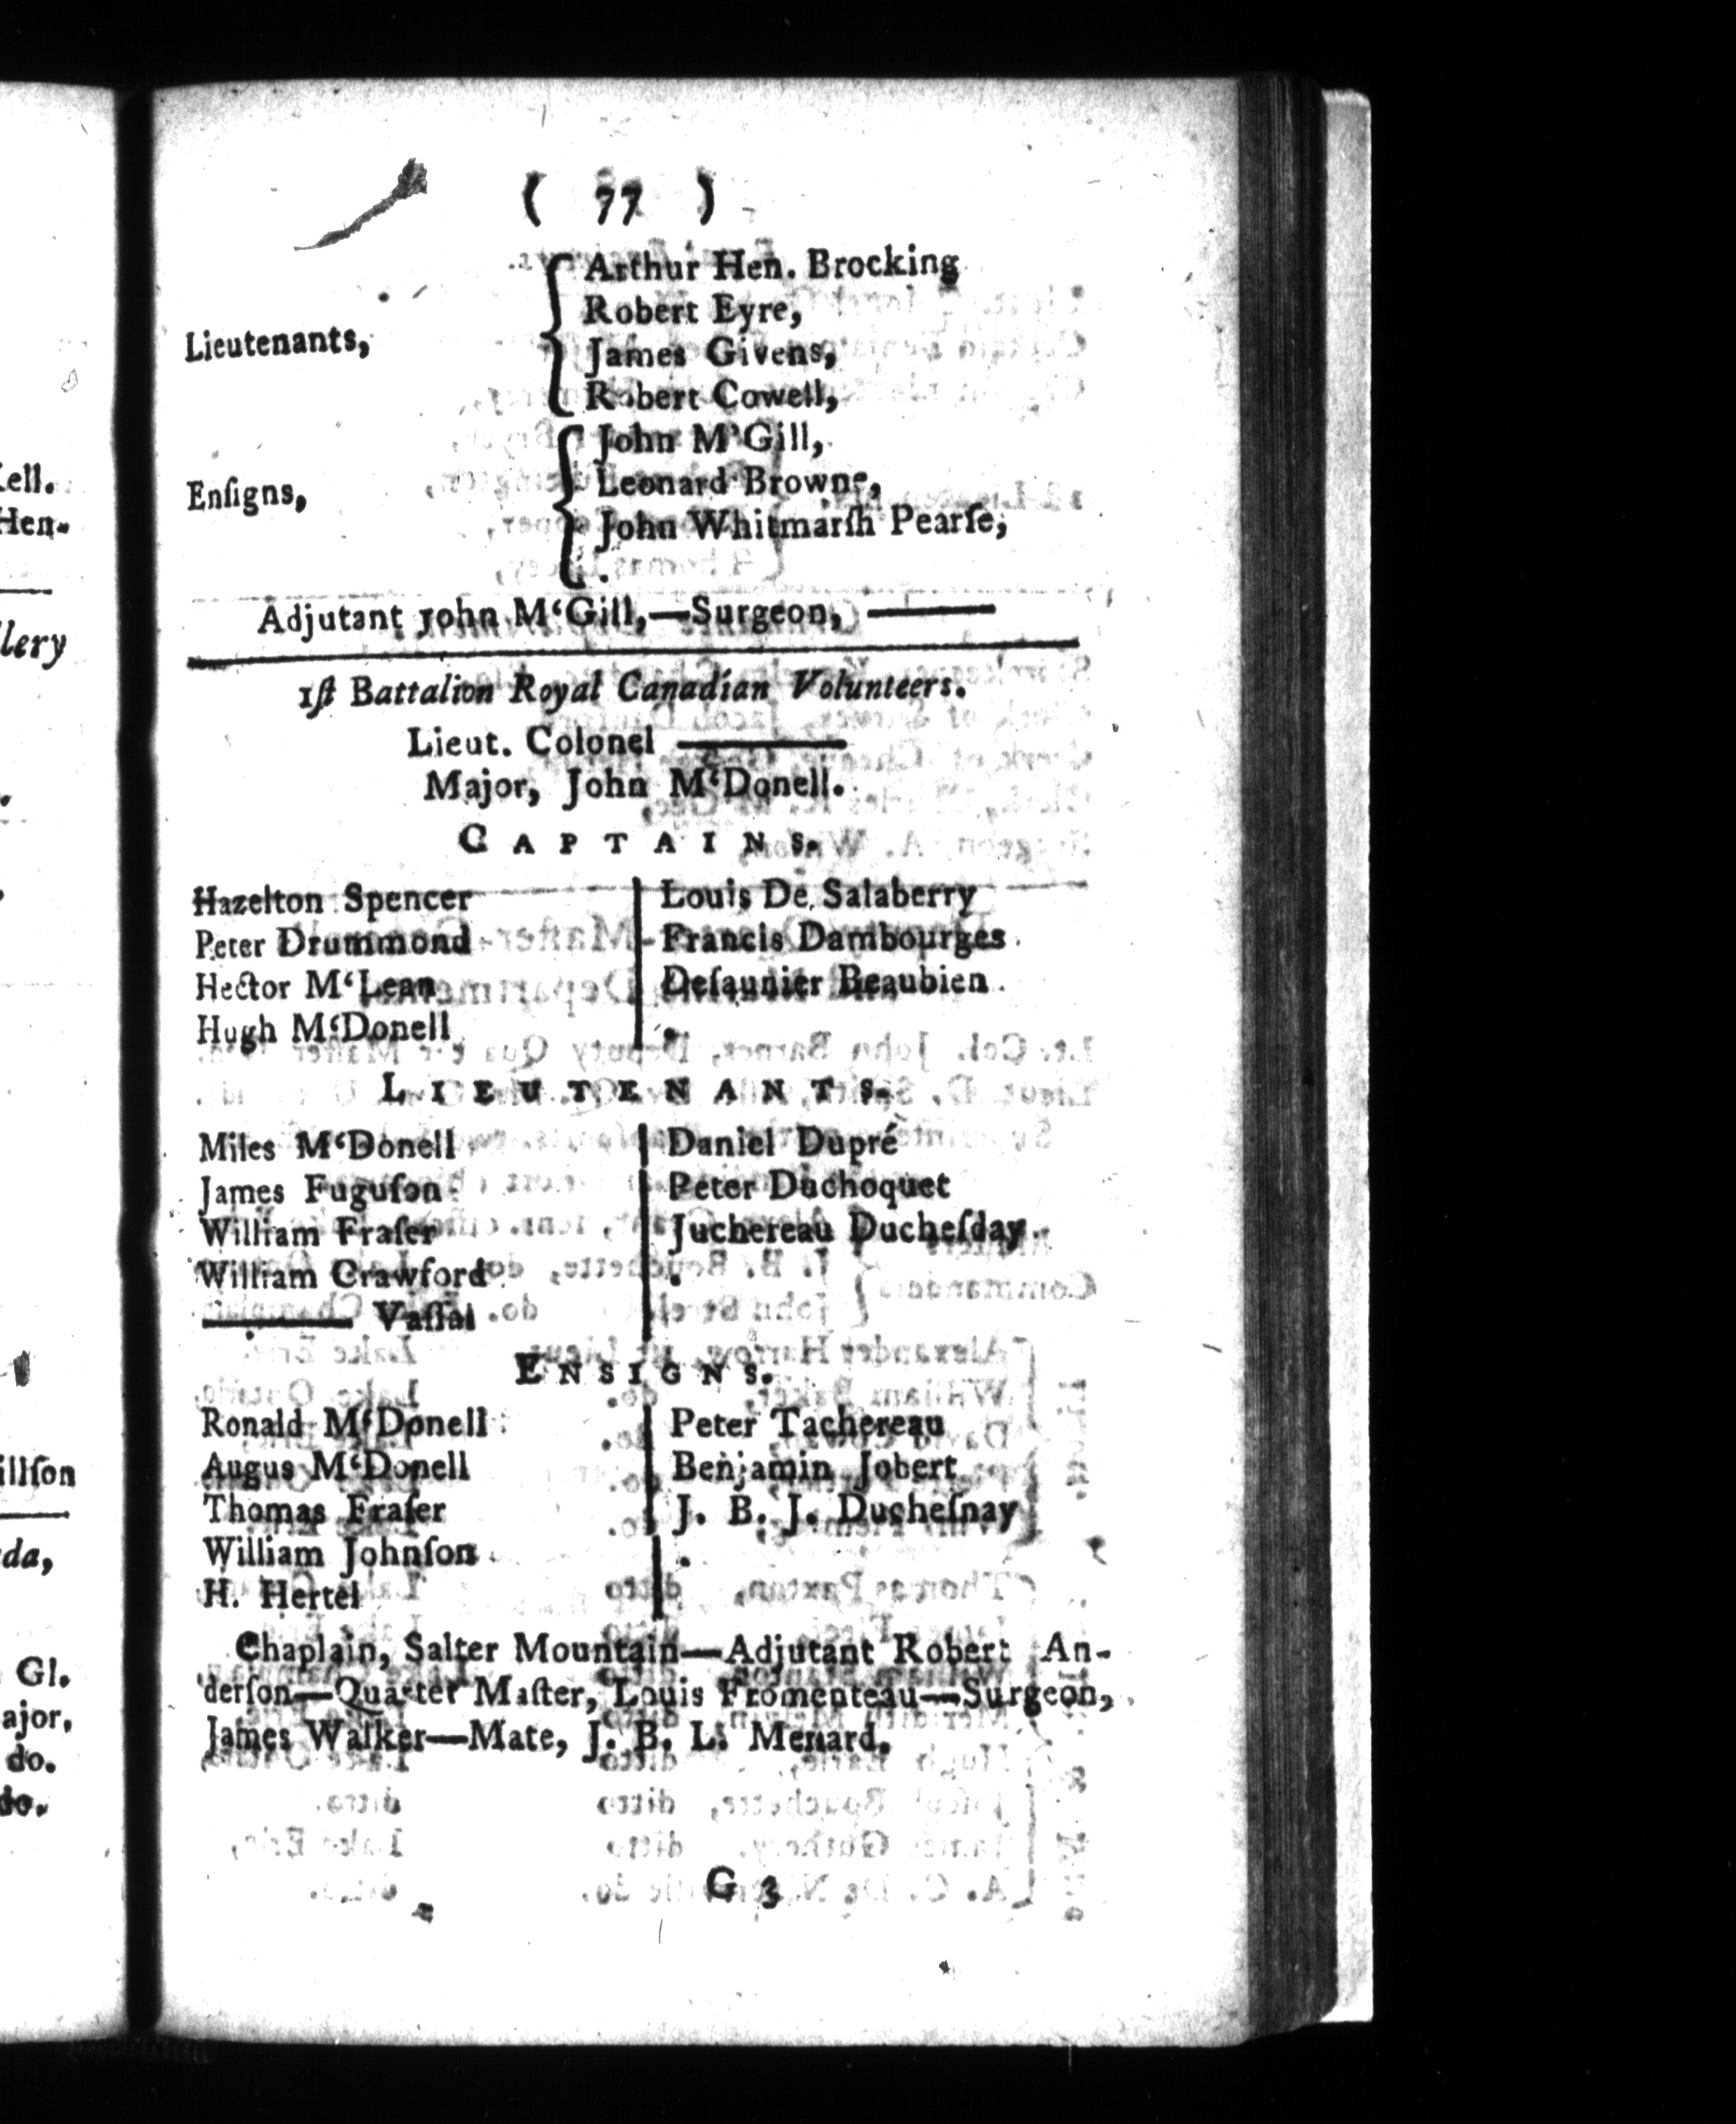 ( 77 )
Arthur Hen. Brocking
Robert Eyre,
Lieutenants,
James Givens,
Robert Cowell,
John M'Gill,
Leonard Browne,
Enſigns,
John Whitmarſh Pearſe,
Adjutant John M‘Gill,—Surgeon, ———
1ſt Battalion Royal Canadian Volunteers.
Lieut. Colonel ———
Major, John M‘Donell.
CAPTAINS.
Hazelton Spencer | Louis De Salaberry
Peter Drummond | Francis Dambourges
Hector M‘Lean | Deſaunier Beaubien
Hugh M‘Donell | .
LIEUTENANTS.
Miles M‘Donell | Daniel Dupré
James Fuguſon | Peter Duchoquet
William Fraſer | Juchereau Ducheſday
William Crawford | .
——— Vaſſal
ENSIGNS.
Ronald M‘Donell | Peter Tachereau
Augus M‘Donell | Benjamin Jobert
Thomas Fraſer | J. B. J. Ducheſnay
William Johnſon | .
H. Hertel
Chaplain, Salter Mountain—Adjutant Robert An-
derſon—Quarter Maſter, Louis Fromenteau—Surgeon,
James Walker—Mate, J. B. L. Menard.
G 3
Hen-
illſon
Gl.
ajor,
do.
do.